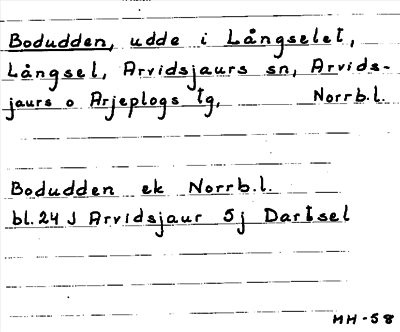 Bodudden, udde i Långselet,
Långsel, Arvidsjaurs sn, Arvids-
jaurs o Arjeplogs tg, Norrb.l.
Bodudden ek Norrb.l.
bl. 24 J Arvidsjaur 5j Dartsel
HH-58